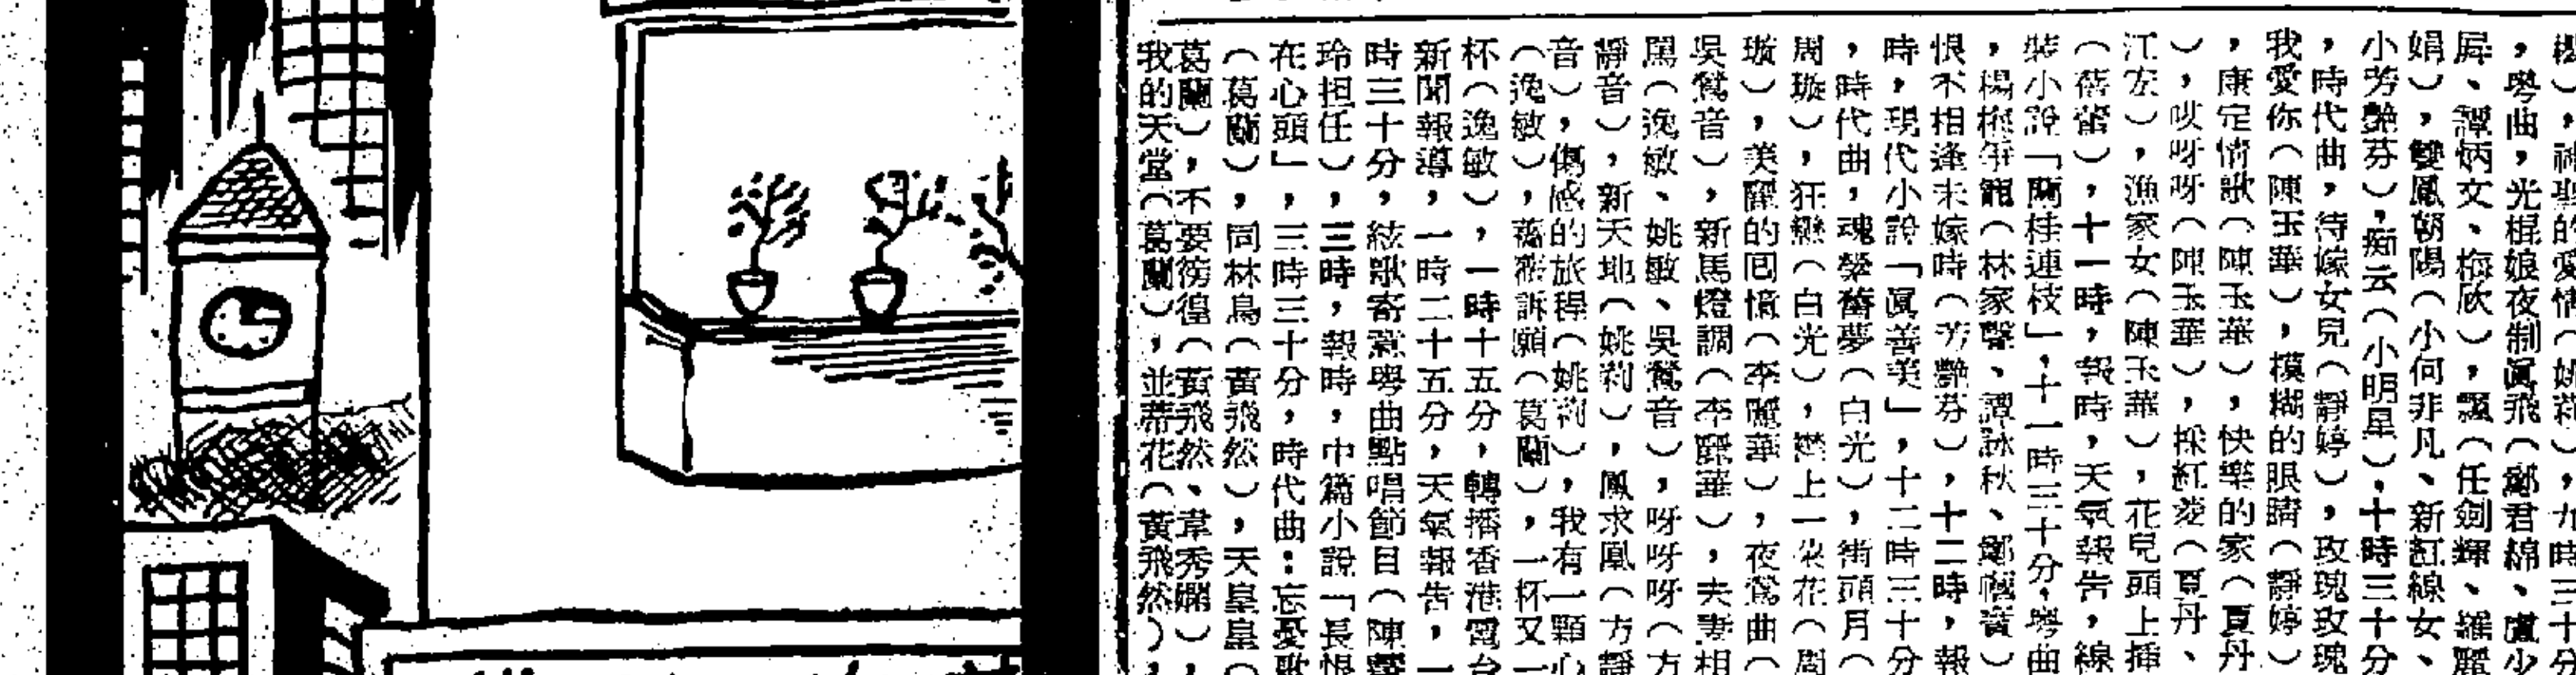 ），神聖的愛情（姚莉），九時三十分
，粵曲，光棍娘夜制眞飛（鄭君綿、盧少
屌、譚炳文、梅欣），飄（任劍輝、羅麗
娟），雙鳳朝陽（小何非凡、新紅線女、
小芳艷芬），痴云（小明星），十時三十分
，時代曲，待嫁女兒（靜婷），玫瑰玫瑰
我愛你（陳玉華），模糊的眼睛（靜婷）
，康定情歌（陳玉華），快樂的家（夏丹
），哎呀呀（陳玉華），採紅菱（夏丹、
江左），漁家女（陳玉華），花兒頭上揷
（蓓蕾），十一時，報時，天氣報告，線
裝小說「蘭桂連枝」，十一時三十分，粵曲
，楊梅爭寵（林家聲、譚詠秋、鄭幗寶）
恨不相逢未嫁時（芳艷芬），十二時，報
時，現代小說「眞善美」，十二時三十分
，時代曲，魂縈舊夢（白光），街頭月（
周璇），狂戀（白光），襟上一朵花（周
璇），美麗的囘憶（李麗華），夜鶯曲（
吳鶯音），新馬燈調（李麗華），夫妻相
罵（逸敏、姚敏、吳鶯音），呀呀呀（方
靜音），新天地（姚莉），鳳求凰（方靜
音），傷感的旅程（姚莉），我有一顆心
（逸敏），薔薇訴願（葛蘭），一杯又一
杯（逸敏），一時十五分，轉播香港電台
新聞報導，一時二十五分，天氣報告，一
時三十分，絃歌寄意粵曲點唱節目（陳
玲担任），三時，報時，中篇小說「長恨
在心頭」，三時三十分，時代曲：忘憂歌
（葛蘭），同林鳥（黃飛然），天皇皇（
葛蘭），不要徬徨（黃飛然、韋秀嫻），
我的天堂（葛蘭），並蒂花（黃飛然），